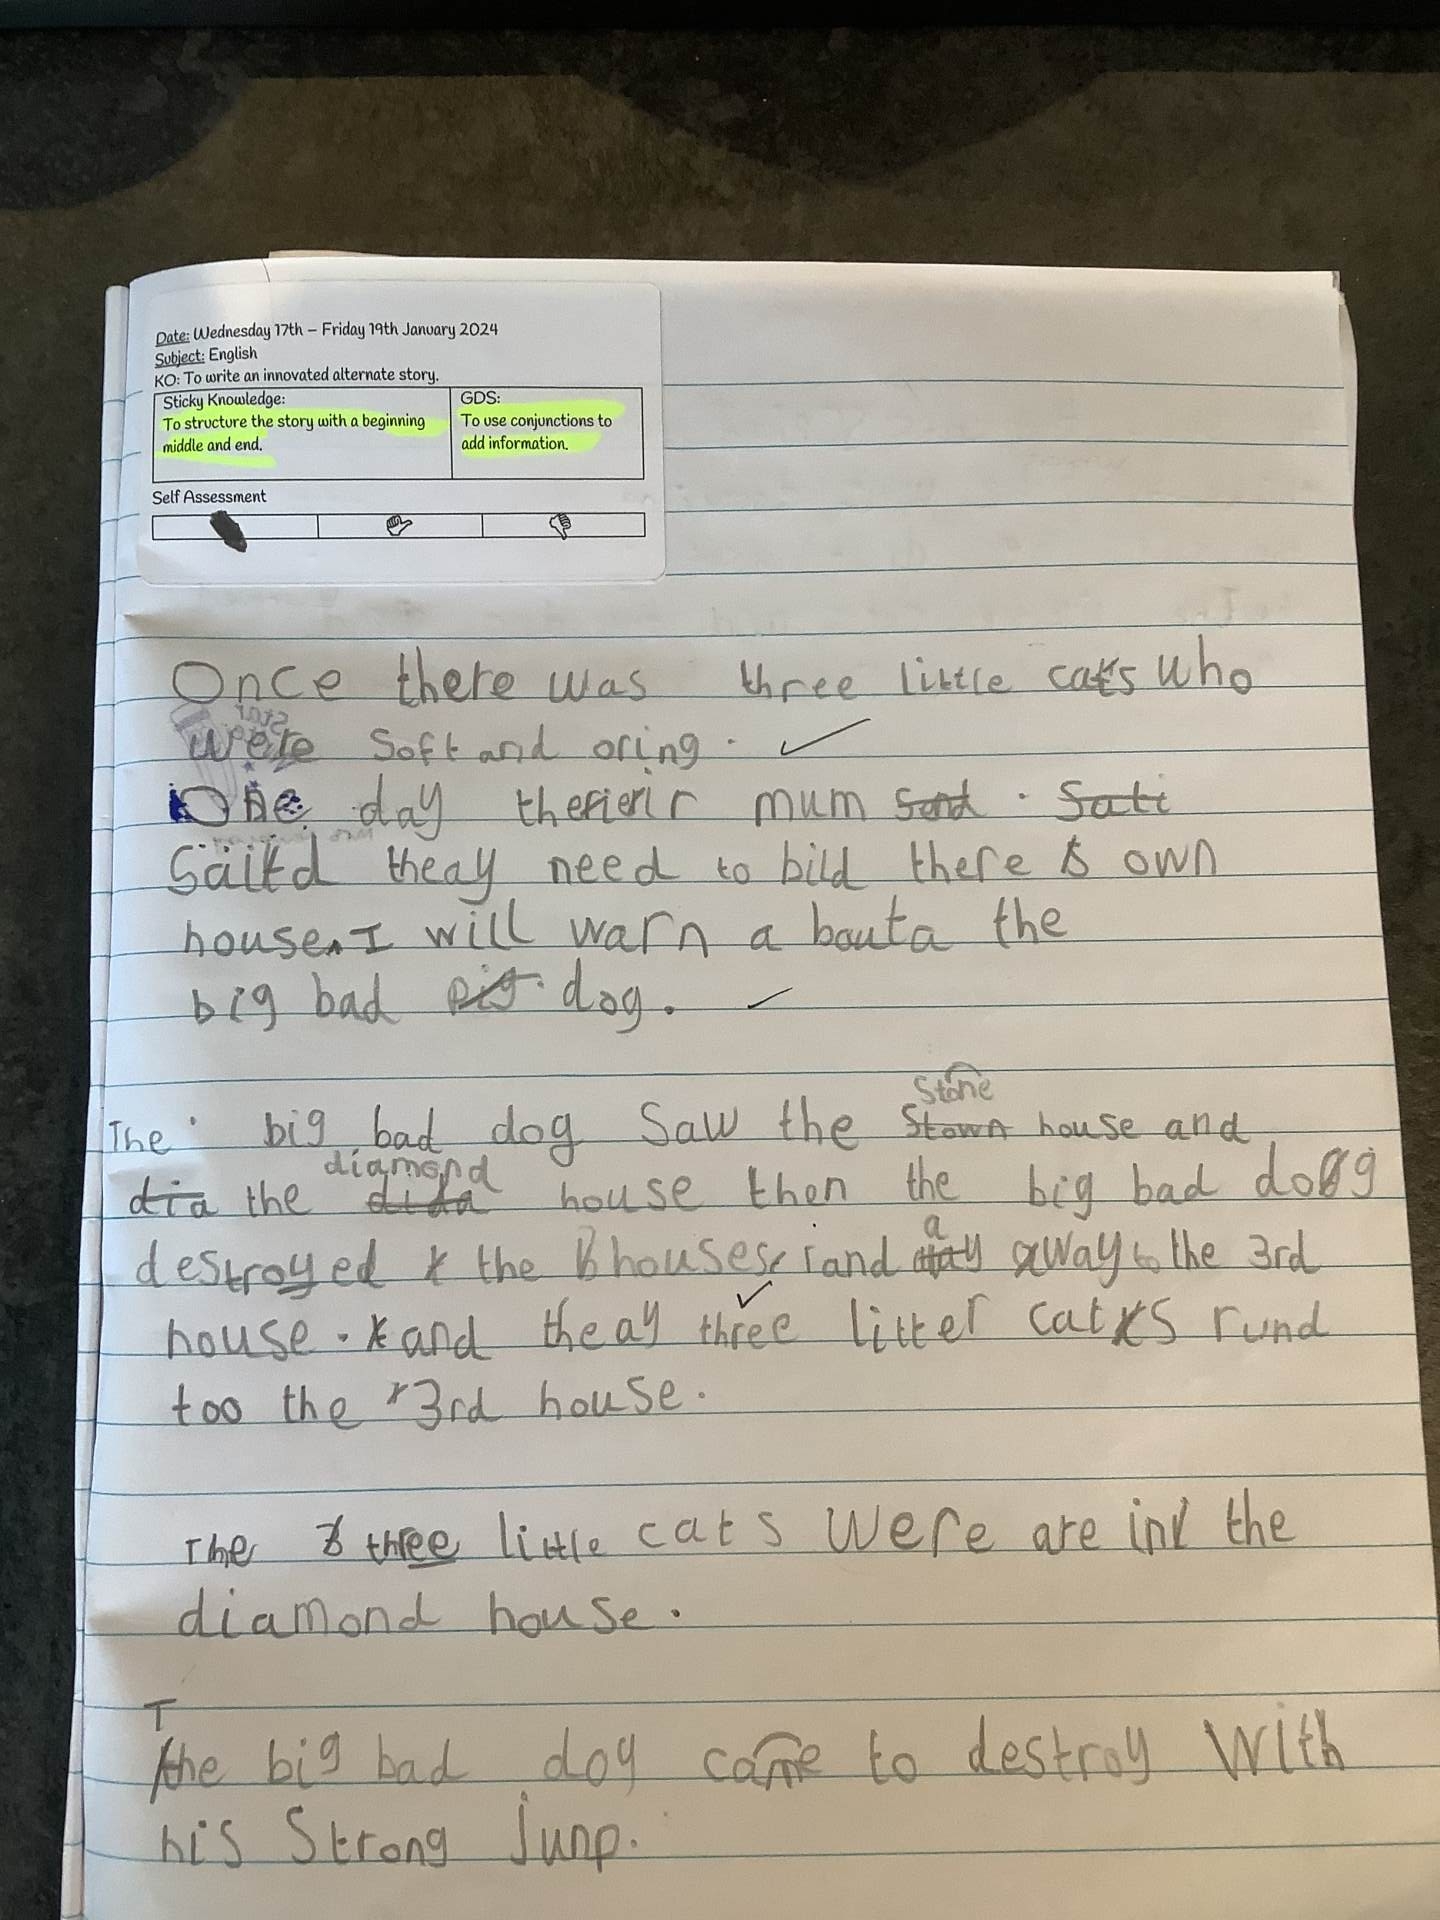 Date: Wednesday 17th – Friday 19th January 2024
Subject: English
KO: To write an innovated alternate story.
Sticky Knowledge:
To structure the story with a beginning
middle and end.
GDS:
To use conjunctions to
add information.
Self Assessment
Once there was three little cats who
were soft and oring.
One day mum
theay need to bild there own
house. I will warn a bouta the
big bad dog.
Stone
The big bad dog Saw the Stown house and
diamond
dia the house then the big bad dog
a
destroyed the houses and away to the 3rd
house. and theay three litter cats rund
too the 3rd house.
The three little cats were are in the
diamond house.
T
the big bad dog came to destroy with
his Strong junp.